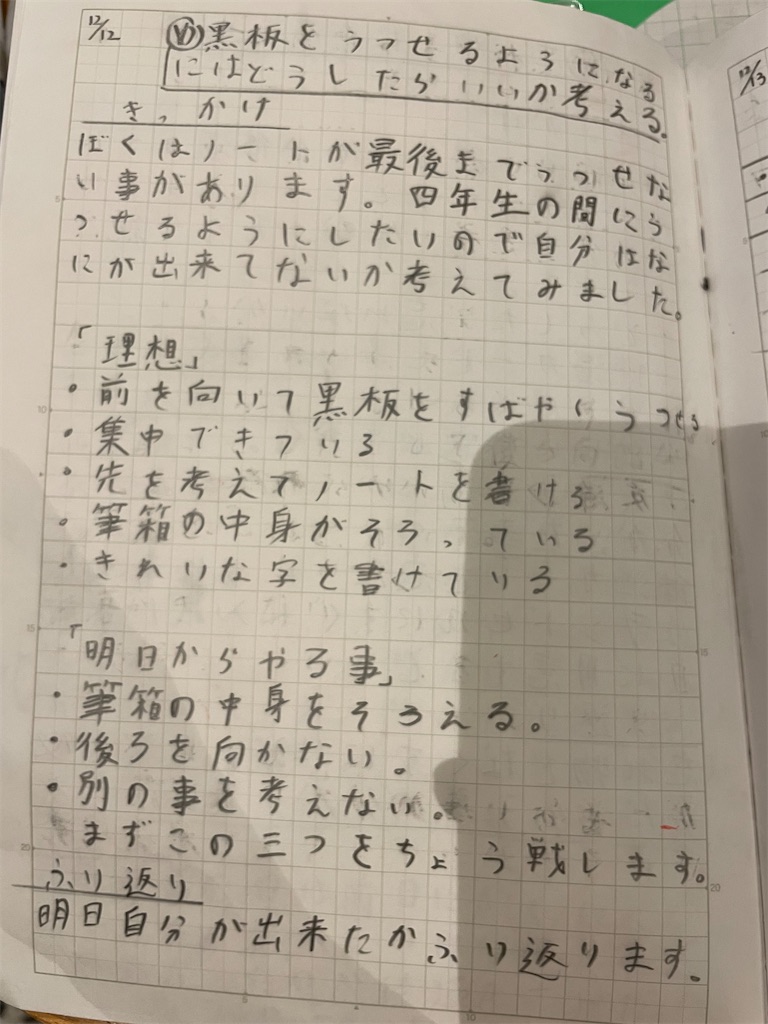 12/12 め 黒板をうつせるようになる
にはどうしたらいいか考える。
きっかけ
ぼくはノートが最後までうつせな
い事があります。四年生の間にう
つせるようにしたいので自分はな
にが出来てないか考えてみました。
「理想」
・前を向いて黒板をすばやくうつせる
・集中できている
・先を考えてノートを書ける
・筆箱の中身がそろっている
・きれいな字を書けている
「明日からやる事」
・筆箱の中身をそろえる。
・後ろを向かない。
・別の事を考えない。
まずこの三つをちょう戦します。
ふり返り
明日自分が出来たかふり返ります。
12/13